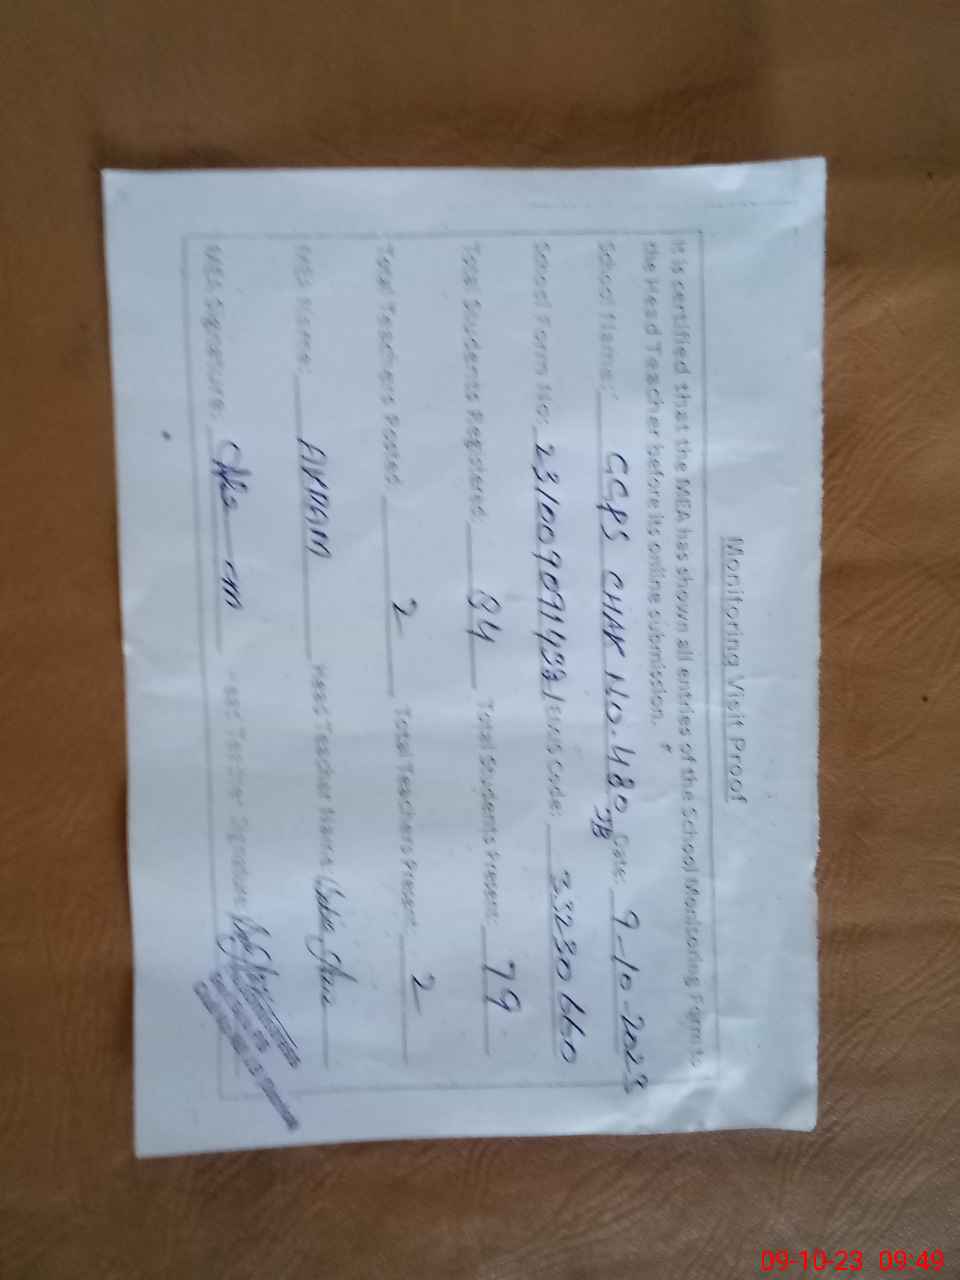 Monitoring Visit Proof
It is certified that the MEA has shown all entries of the School Monitoring Form to
the Head Teacher before its online submission.
School Name: GGPS CHAK NO. 480 JB Date: 9-10-2023
School Form No: EMIS Code: 33230660
Total Students Registered: 84 Total Students Present: 79
Total Teachers Posted: 2 Total Teachers Present: 2
MEA Name: AKRAM Head Teacher Name:
MEA Signature: Head Teacher Signature:
09-10-23 09:49